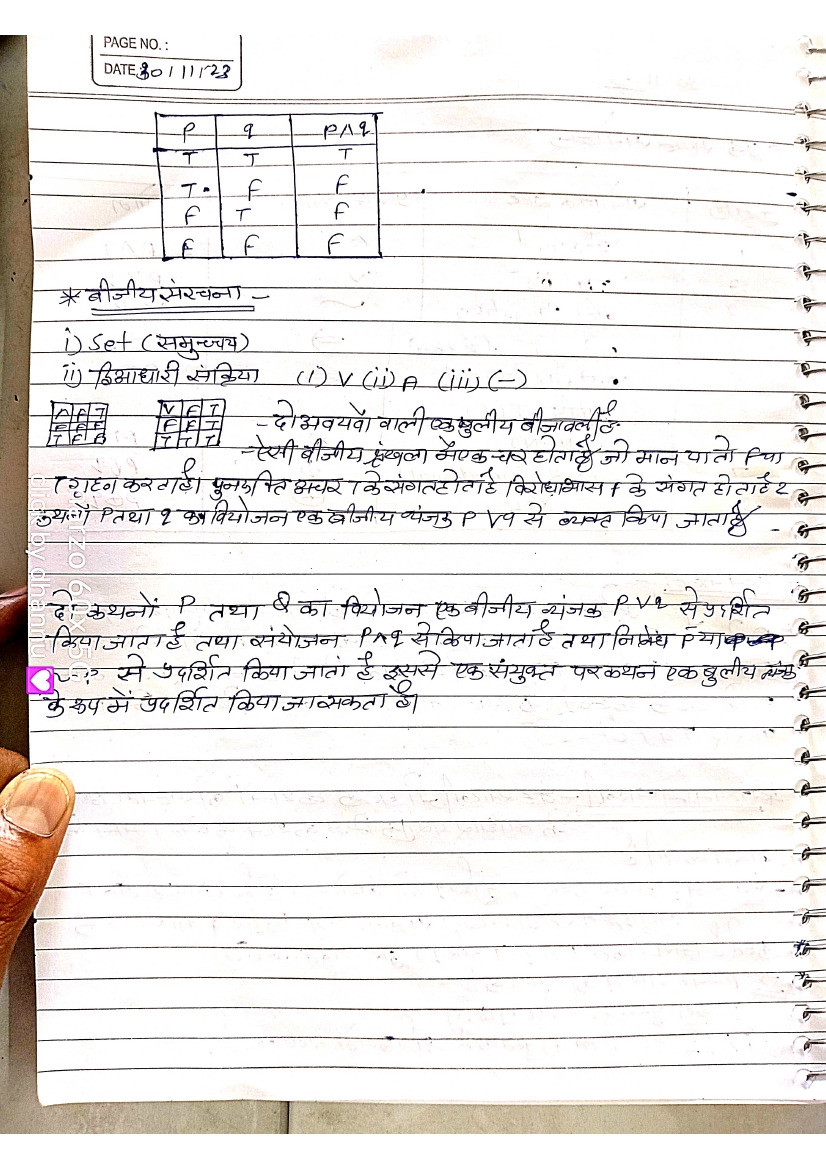 PAGE NO. :
DATE 30/11/23
P q P∧q
T T T
T F F
F T F
F F F
* बीजीय संरचना -
i) Set (समुच्चय)
ii) द्विआधारी संक्रिया (i) V (ii) Λ (iii) (-)
Λ F T
F F F
T F
V F T
F F T
T T T
- दो अवयवों वाली एक बुलीय बीजावली है
- ऐसी बीजीय श्रृंखला में एक चर होता है जो मान या तो F या
T ग्रहण करता है। पुनरुक्ति अचर T के संगत होता है विरोधाभास f के संगत होता है 2
कथनों P तथा q का वियोजन एक बीजीय व्यंजक P V q से व्यक्त किया जाता है -
दो कथनों P तथा Q का वियोजन एक बीजीय व्यंजक P V q से प्रदर्शित
किया जाता है तथा संयोजन P∧q से किया जाता है तथा निषेध P̄ या
~P से प्रदर्शित किया जाता है इससे एक संयुक्त परकथन एक बुलीय
के रूप में प्रदर्शित किया जा सकता है।
click by dhannu